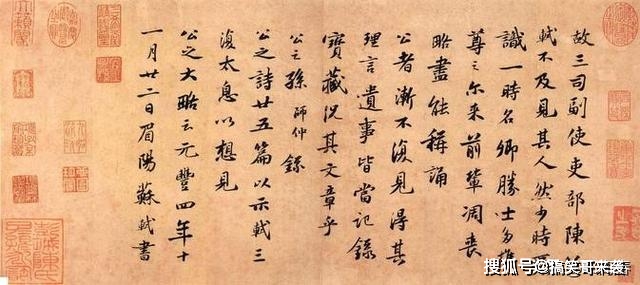 故三司副使吏部陳
軾不及見其人然少時所
識一時名卿勝士多推
尊之尔来前輩凋喪
略盡能稱誦
公者漸不復見得其
理言遺事皆當記錄
寶藏況其文章乎
公之孫師仲錄
公之詩廿五篇以示軾三
復太息以想見
公之大略云元豐四年十
一月廿二日眉陽蘇軾書
搜狐号@搞笑哥来袭